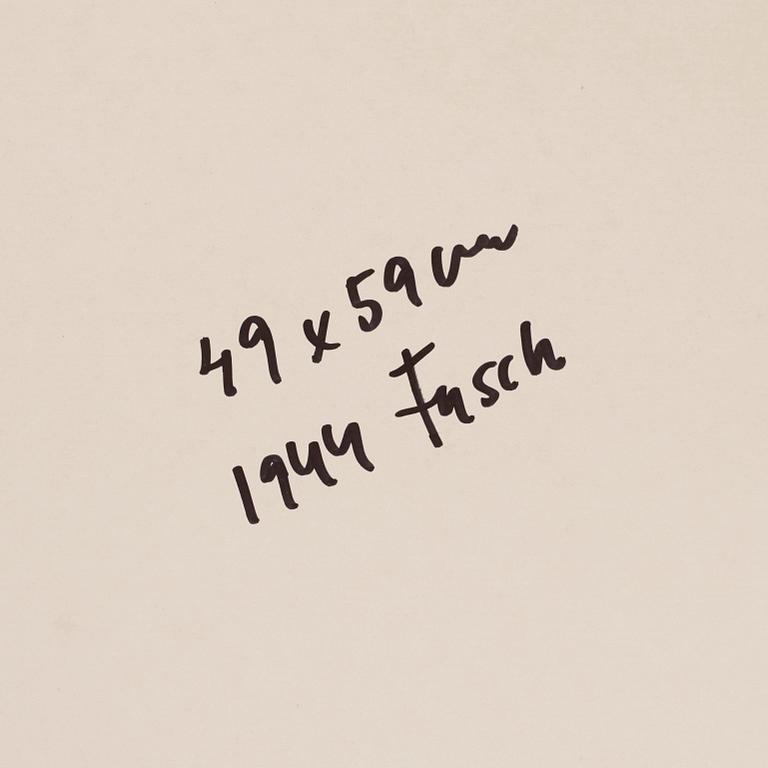 49 x 59 cm
1944 Fasch